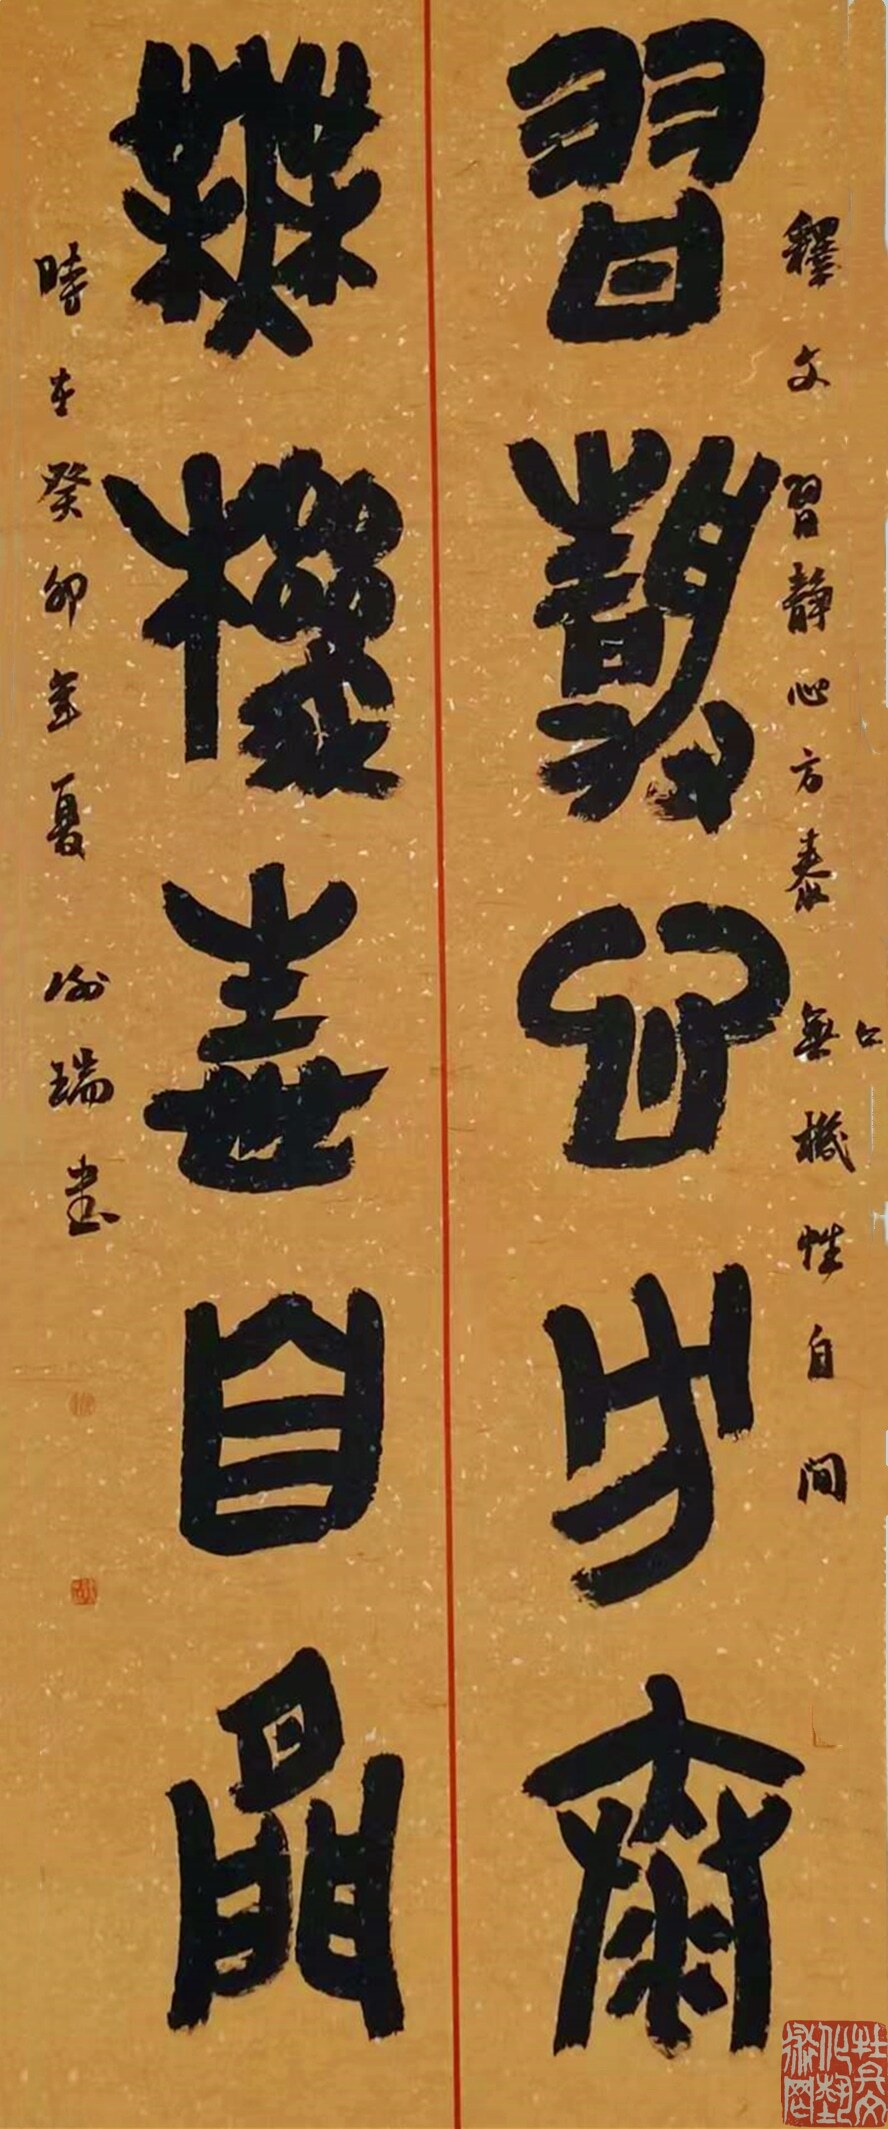 釋文 習靜心方泰 無機性自间
習靜心方泰
無機性自閒
時在癸卯年夏 谢瑞書